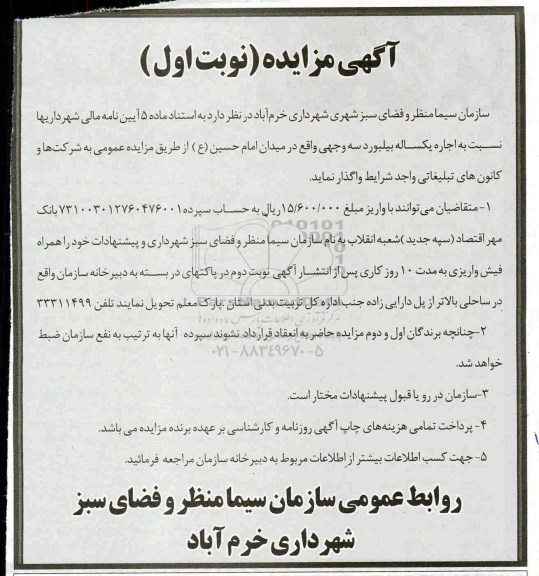 آگهی مزایده (نوبت اول)
سازمان سیما منظر و فضای سبز شهری شهرداری خرم آباد در نظر دارد به استناد ماده ۵ آیین نامه مالی شهرداریها
نسبت به اجاره یکساله بیلبورد سه وجهی واقع در میدان امام حسین (ع) از طریق مزایده عمومی به شرکت‌ها و
کانون های تبلیغاتی واجد شرایط واگذار نماید.
۱- متقاضیان می توانند با واریز مبلغ ۱۵/۶۰۰/۰۰۰ ریال به حساب سپرده ۷۳۱۰۰۳۰۱۲۷۶۰۴۷۶۰۰۱ بانک
مهر اقتصاد (سپه جدید) شعبه انقلاب به نام سازمان سیما منظر و فضای سبز شهرداری و پیشنهادات خود را همراه
فیش واریزی به مدت ۱۰ روز کاری پس از انتشار آگهی نوبت دوم در پاکتهای در بسته به دبیرخانه سازمان واقع
در ساحلی بالاتر از پل دارایی زاده جنب اداره کل تربیت بدنی استان پارک معلم تحویل نمایند تلفن ۳۳۳۱۱۴۹۹
۲-چنانچه برندگان اول و دوم مزایده حاضر به انعقاد قرارداد نشوند سپرده آنها به ترتیب به نفع سازمان ضبط
خواهد شد.
۰۲۱-۸۸۳۴۹۶۷۰-۵
۳-سازمان در رو یا قبول پیشنهادات مختار است.
۴- پرداخت تمامی هزینه‌های چاپ آگهی روزنامه و کارشناسی بر عهده برنده مزایده می باشد.
۵- جهت کسب اطلاعات بیشتر از اطلاعات مربوط به دبیرخانه سازمان مراجعه فرمائید.
روابط عمومی سازمان سیما منظر و فضای سبز
شهرداری خرم آباد